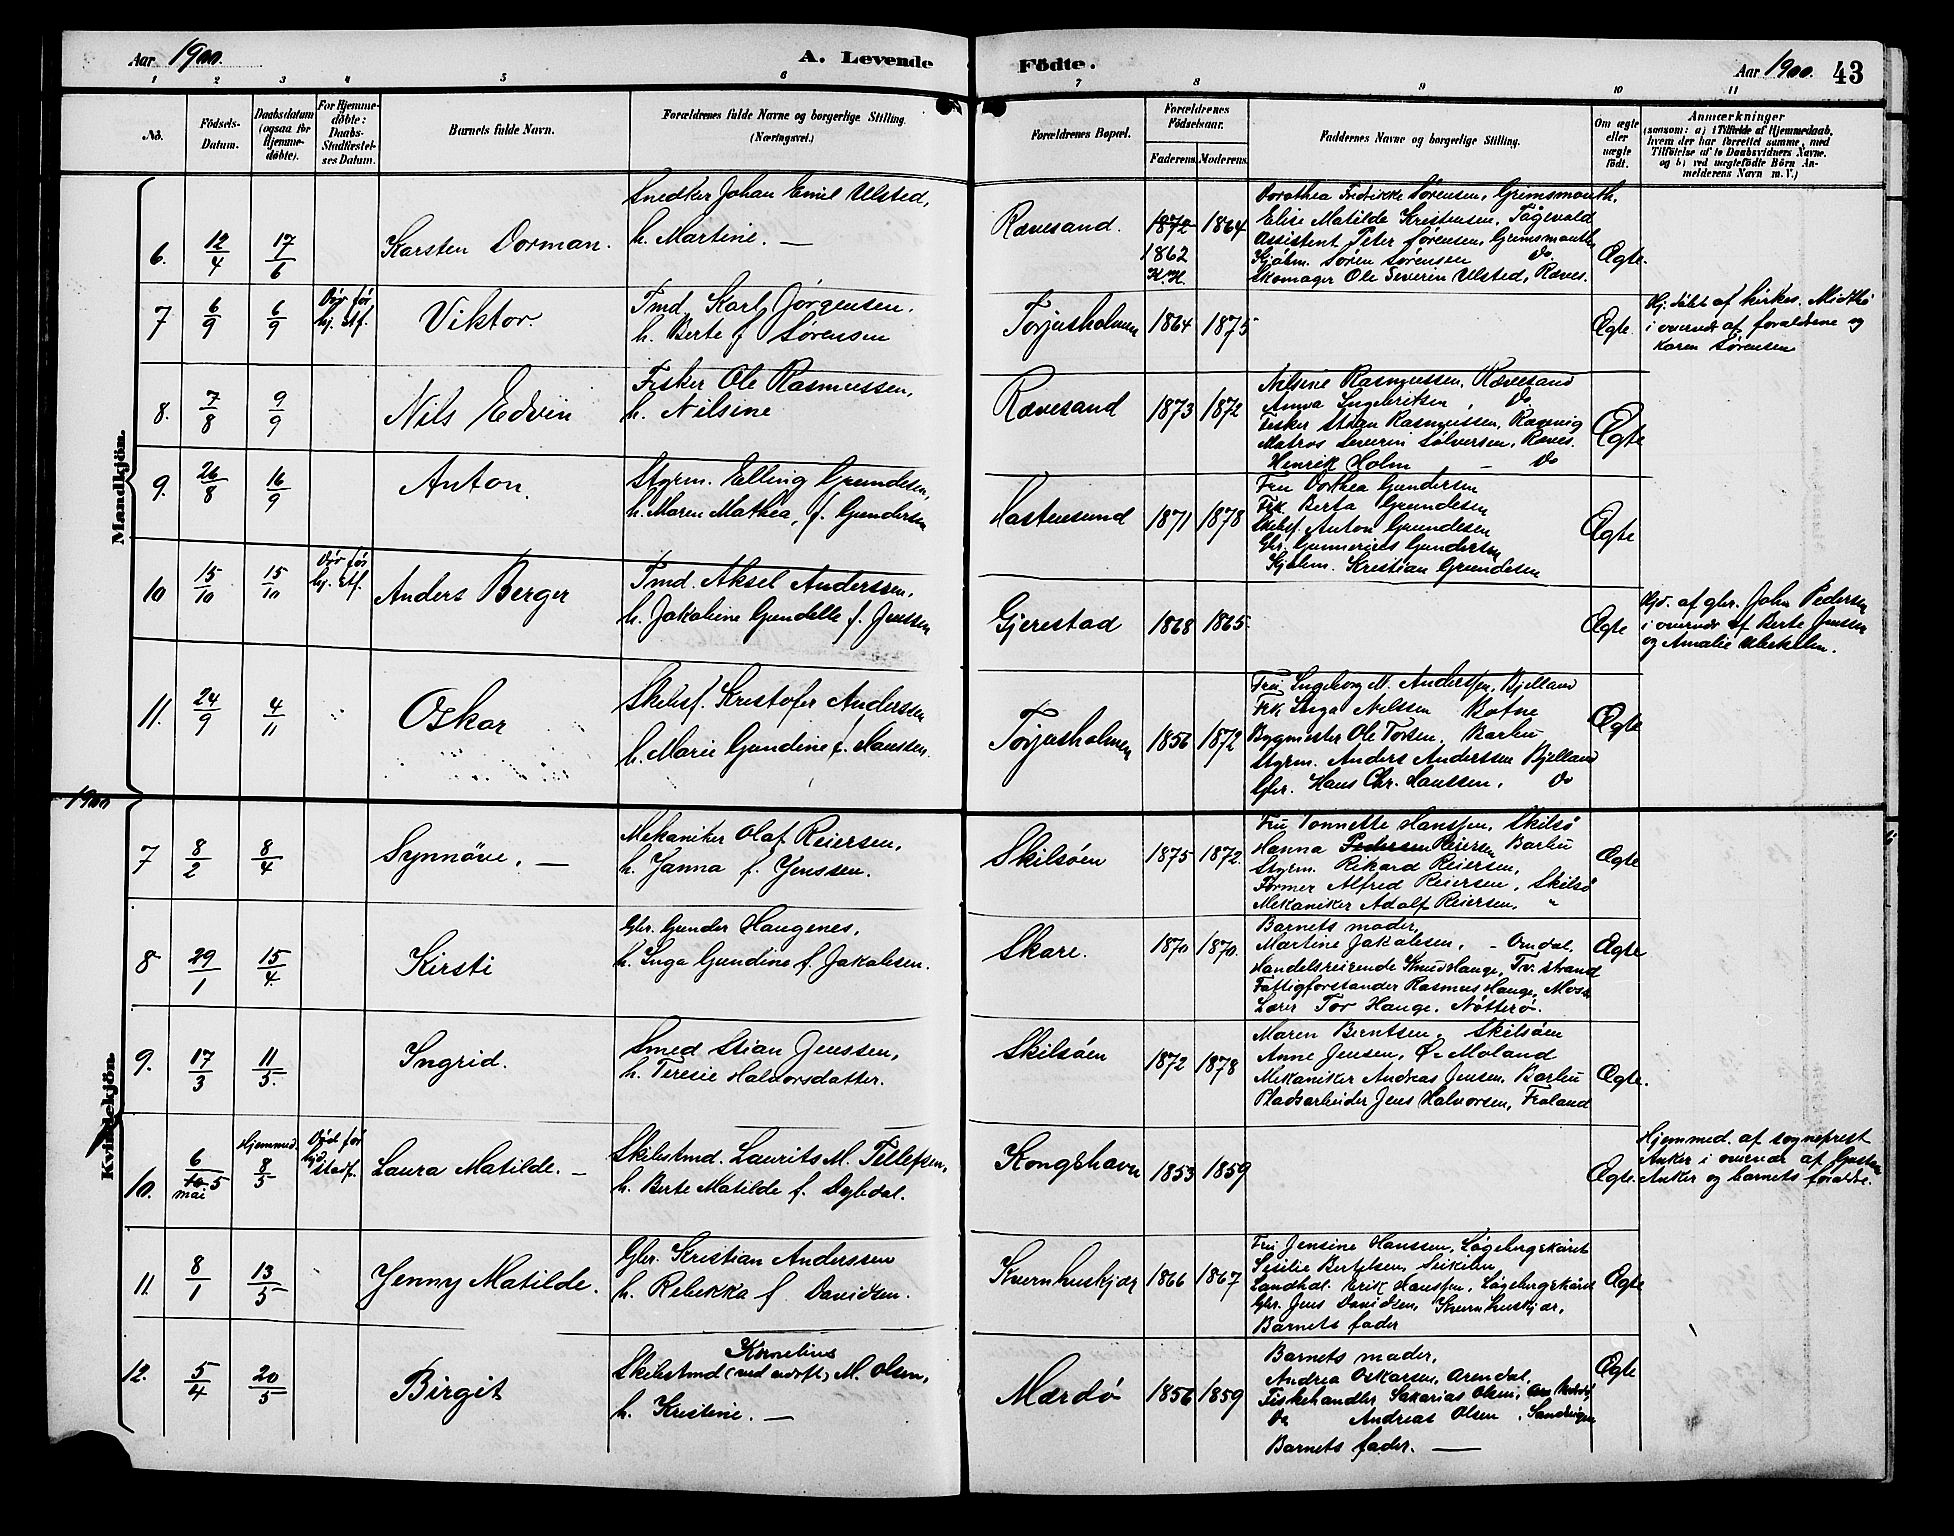 Aar 1900.
A. Levende
Födte.
Aar 1900. 43
1 2 3 4 5 6 7 8 9 10 11
No.
Födsels-
Datum.
Daabsdatum
(ogsaa for
Hjemme-
døbte).
For Hjemme-
döbte:
Daabs-
Stadfæstel-
ses Datum.
Barnets fulde Navn.
Forældrenes fulde Navne og borgerlige Stilling.
(Næringsvei.)
Forældrenes Bopæl.
Forældrenes
Födselsaar.
Faderens. Moderens.
Faddernes Navne og borgerlige Stilling.
Om ægte
eller
uægte
födt.
Anmærkninger
(saasom: a) i Tilfælde af Hjemmedaab,
hvem der har forrettet samme, med
Tilföielse af to Daabsvidners Navne.
og b) ved uægtefödte Börn An-
melderens Navn m. V.)
Mandkjön.
6. 12/4 17/6 Karsten Dorman.
Snedker Johan Emil Ulsted,
h. Martine. —
Rævesand. 1872 1864
1862
K.H.
Dorothea Fredrikke Sørensen, Grimsmouth,
Elise Matilde Kristensen, Tågevold
Assistent Peter Sørensen, Grimsmouth
Kjøbm. Søren Sørensen Do
Skomager Ole Severin Ulsted, Ræves.
Ægte.
7 6/9 6/9 Død før
hj. stf.
Viktor.
Tmd. Karl Jørgensen.
h. Berte f Sørensen
Torjusholmen 1864 1875
Ægte.
Hj. døbt af kirkes.
i overvær af forældrene og
Karen Sørensen
8. 7/8 9/9 Nils Edvin
Fisker Ole Rasmussen,
h. Nilsine
Rævesand 1873 1872
Nilsine Rasmussen, Rævesand
Anna Ingebriktsen, Do
Fisker Rasmussen,
Matros Severin Sølversen, Ræves.
Henrik Holm — Do
Ægte
9. 26/8 16/9 Anton.
Styrm. Elling Grundesen,
h. Maren Mathea, f. Gundersen
Hastensund 1871 1878
Fru Dorthea Gundersen
Frk. Berta Grundesen
Skibsf. Anton Grundesen
Gbr. Gundersen
Kjøbm. Kristian Grundesen
Ægte
10 15/10 15/10 Død før
hj. stf.
Anders Berger
Tmd. Aksel Anderssen,
h. Jakobine Gundelle f. Jenssen
Gjerestad 1868 1865.
Ægte
Hjd. af gbr. John Pedersen
i overvær af Berte Jenssen
og Amalie
11. 24/9 4/11 Oskar
Skibsf. Kristofer Anderssen
h. Marie Gundine f. Hanssen.
Torjusholmen 1856 1872
Fru Ingeborg M. Anderssen, Bjelland
Frk Inga Nilssen Botne
Bygmester Ole Torsen. Barbu
Styrm. Anders Anderssen Bjelland
Gbr. Hans Chr. Hanssen. Do
Ægte
1900
Kvindekjön.
7 8/2 8/4 Synnöve. —
Mekaniker Olaf Reiersen,
h. Janna f. Jenssen.
Skilsøen 1875 1872.
Fru Tonnette Hanssen, Skilsø
Hanna Pedersen Reiersen Barbu
Styrm. Rikard Reiersen,
Former Alfred Reiersen, Skilsø
Mekaniker Adolf Reiersen, "
Ægte
8 29/1 15/4 Kirsti
Gbr. Gunder Haugenes,
h. Inga Gundine f. Jakobsen.
Skare. 1870 1870.
Barnets moder,
Martine Jakobsen, - Omdal,
Handelsreisende Knud Hauge, Tv. strand
Fattigforstander Rasmus Hauge, Moss
Lærer Tor Hauge. Nøtterø.
Ægte
9. 17/3 11/5. Ingrid.
Smed Stian Jenssen,
h. Teresie Halvorsdatter.
Skilsøen 1872 1878
Maren Berntsen, Skilsøen
Anne Jensen, Ø. Moland
Mekaniker Andreas Jensen, Barbu
Pladsarbeider Jens Halvorsen, Froland
Ægte.
10. 6/5 mai Hjemmed. 8/5 Død før
hjd.
stadf.
Laura Matilde. —
Skibstmd. Laurits M. Tellefsen,
h. Berte Matilde f. Dybdal.
Kongshavn 1853 1859
Ægte.
Hjemmed. af sogneprest
Anker i overvær af
Anker og barnets foreldre.
11. 8/1 13/5 Jenny Matilde.
Gbr. Kristian Anderssen
h. Rebekka f. Davidsen.
Kvernhuskjær 1866 1867
Fru Jensine Hanssen, Løgebergskåret
Sesilie Bertelsen,
Landhdl. Erik Hanssen, Løgebergskåret
Gbr. Jens Davidsen, Kvernhuskjær,
Barnets fader
Ægte
12. 5/4 20/5 Birgit
Kornelius
Skibstmd M. Olsen,
h. Kristine. —
Mærdø 1856 1859
Barnets moder,
Andrea Oskarsen, Arendal,
Fiskehandler Sakarias Olsen,
Do Andreas Olsen,
Barnets fader. —
Ægte